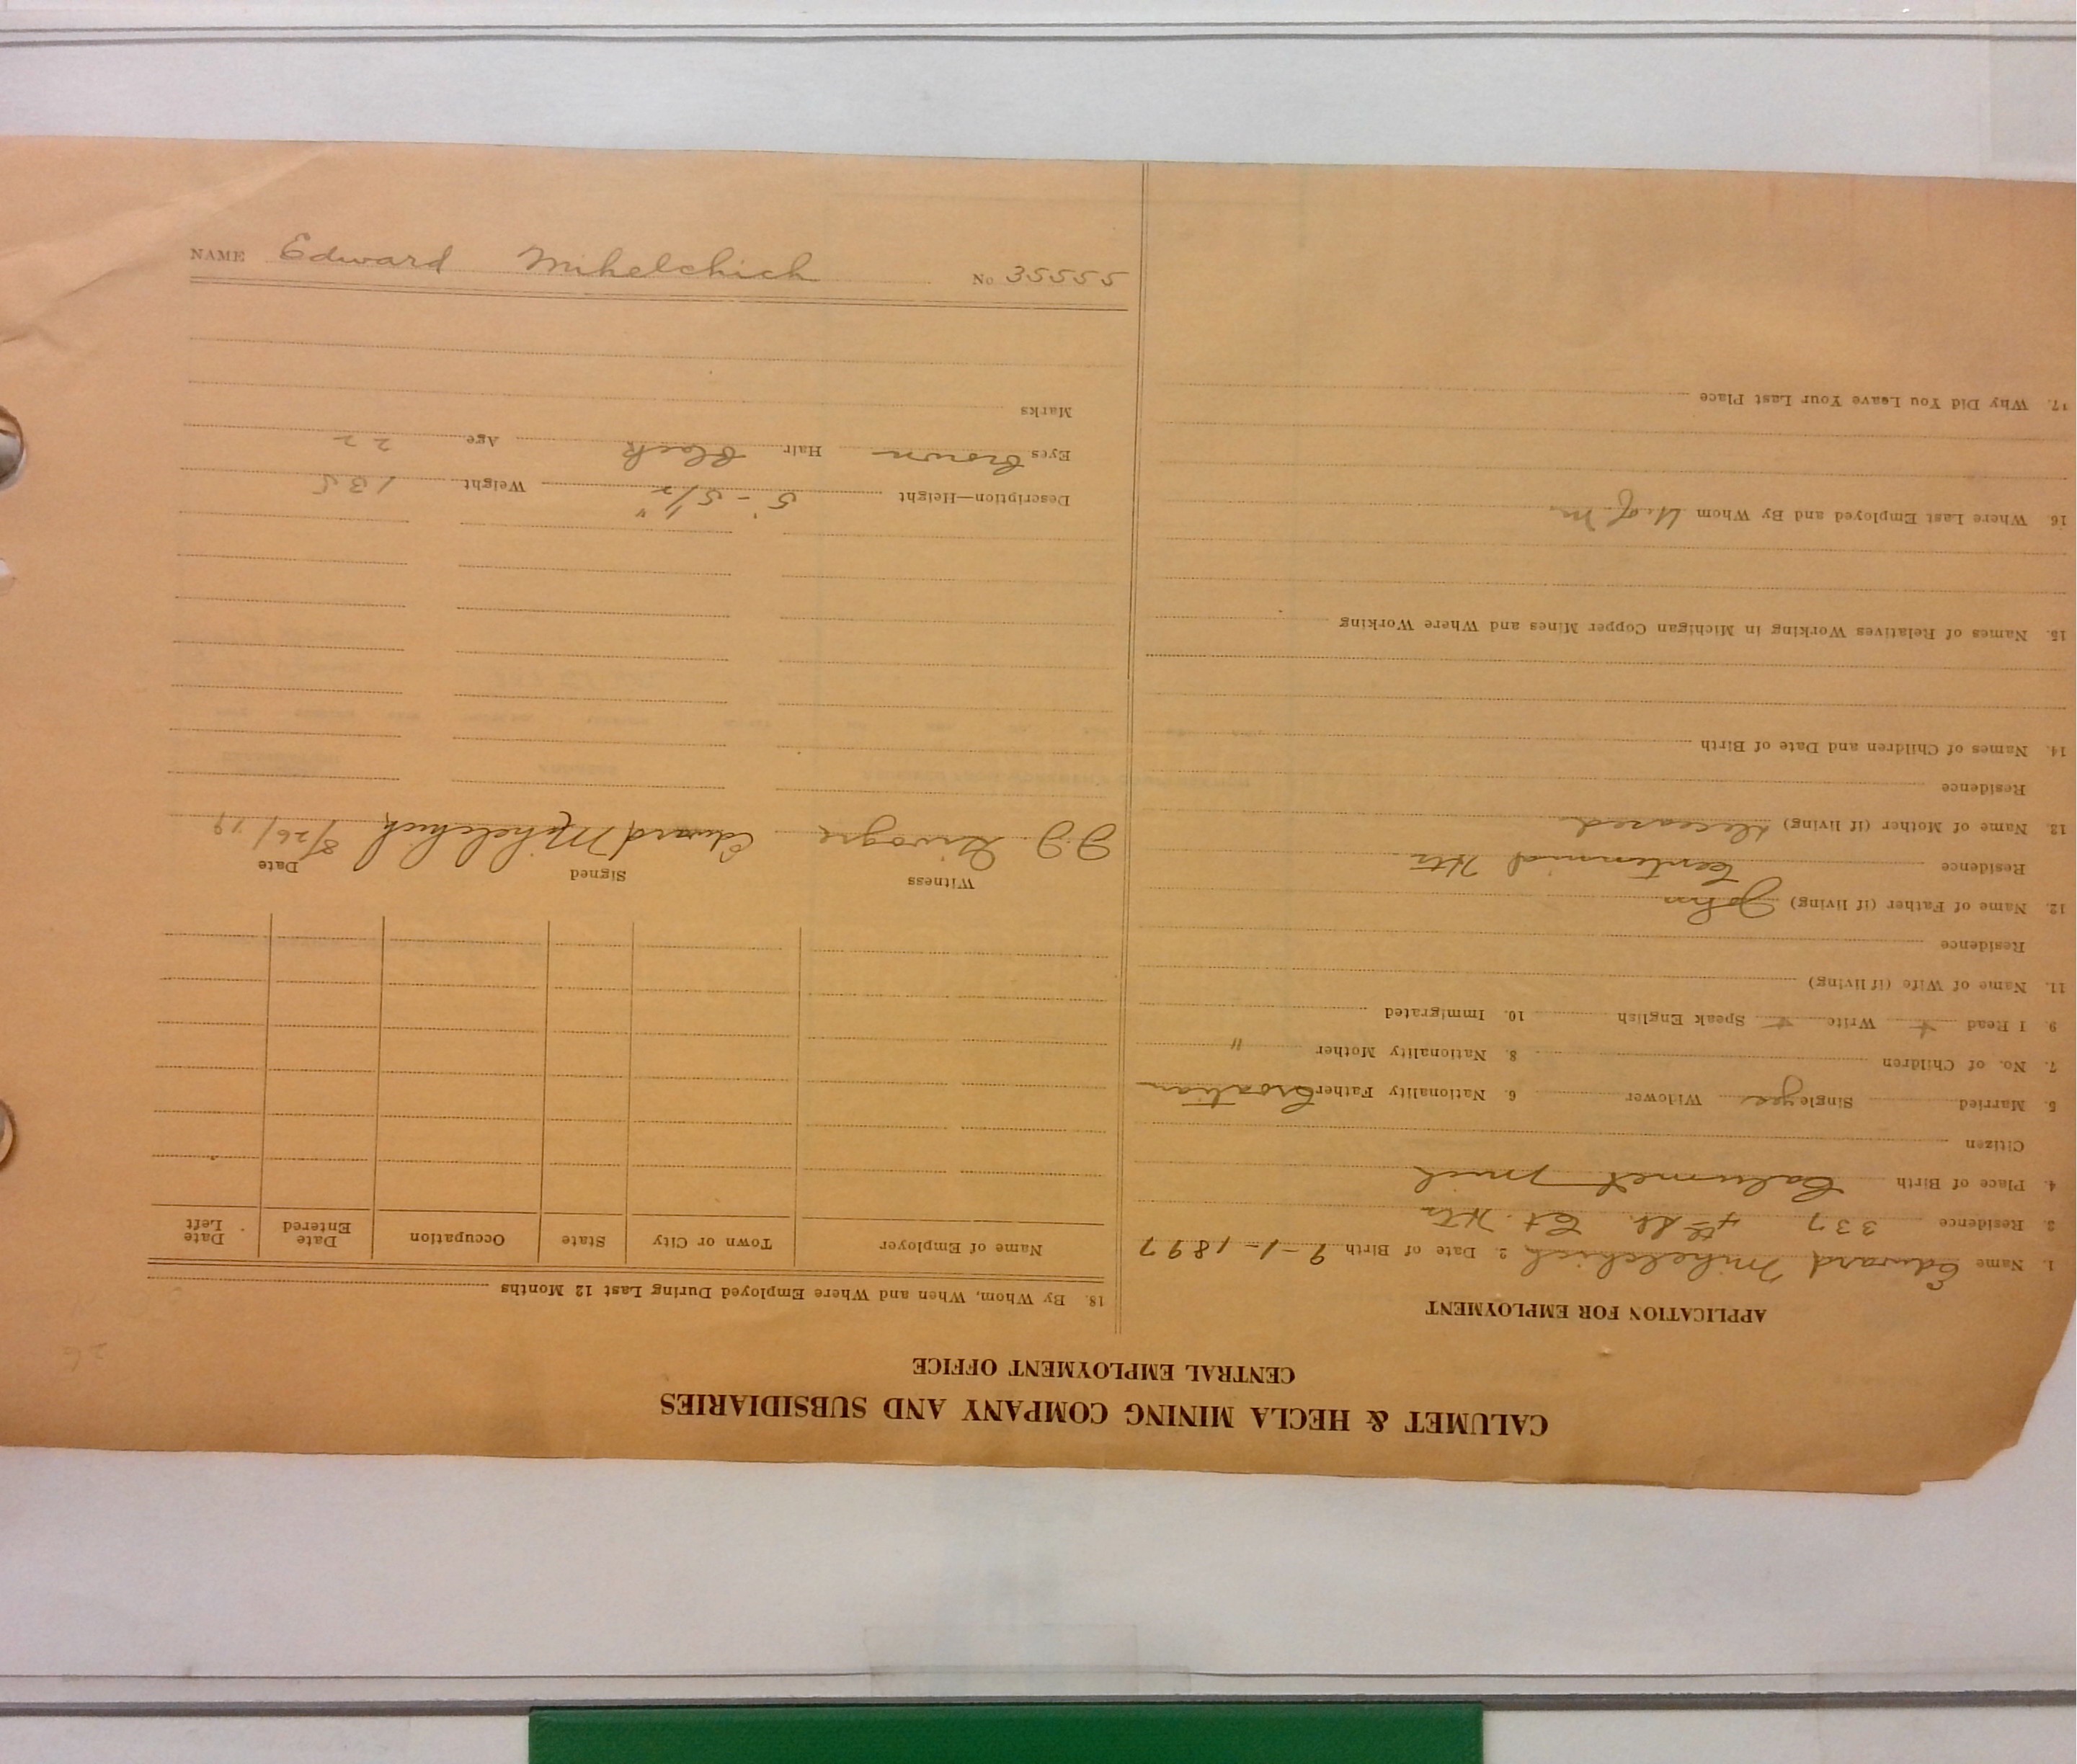 CALUMET & HECLA MINING COMPANY AND SUBSIDIARIES
CENTRAL EMPLOYMENT OFFICE
APPLICATION FOR EMPLOYMENT
1. Name Edward Mihelchich 2. Date of Birth 9-1-1897
3. Residence 337 4th St. Ct. Hts
4. Place of Birth Calumet Mich
Citizen
5. Married Single yes Widower 6. Nationality Father Croatian
7. No. of Children 8. Nationality Mother "
9. I Read + Write + Speak English 10. Immigrated
11. Name of Wife (if living)
Residence
12. Name of Father (if living) John
Residence Centennial Hts
13. Name of Mother (if living) Deceased
Residence
14. Names of Children and Date of Birth
15. Names of Relatives Working in Michigan Copper Mines and Where Working
16. Where Last Employed and By Whom U. of M.
17. Why Did You Leave Your Last Place
18. By Whom, When and Where Employed During Last 12 Months
Name of Employer Town or City State Occupation Date Entered Date Left
Witness Signed Date
Edward Mihelchich 8/26/19
Description—Height 5'-5 1/2" Weight 135
Eyes Brown Hair Black Age 22
Marks
NAME Edward Mihelchich No 35555
26